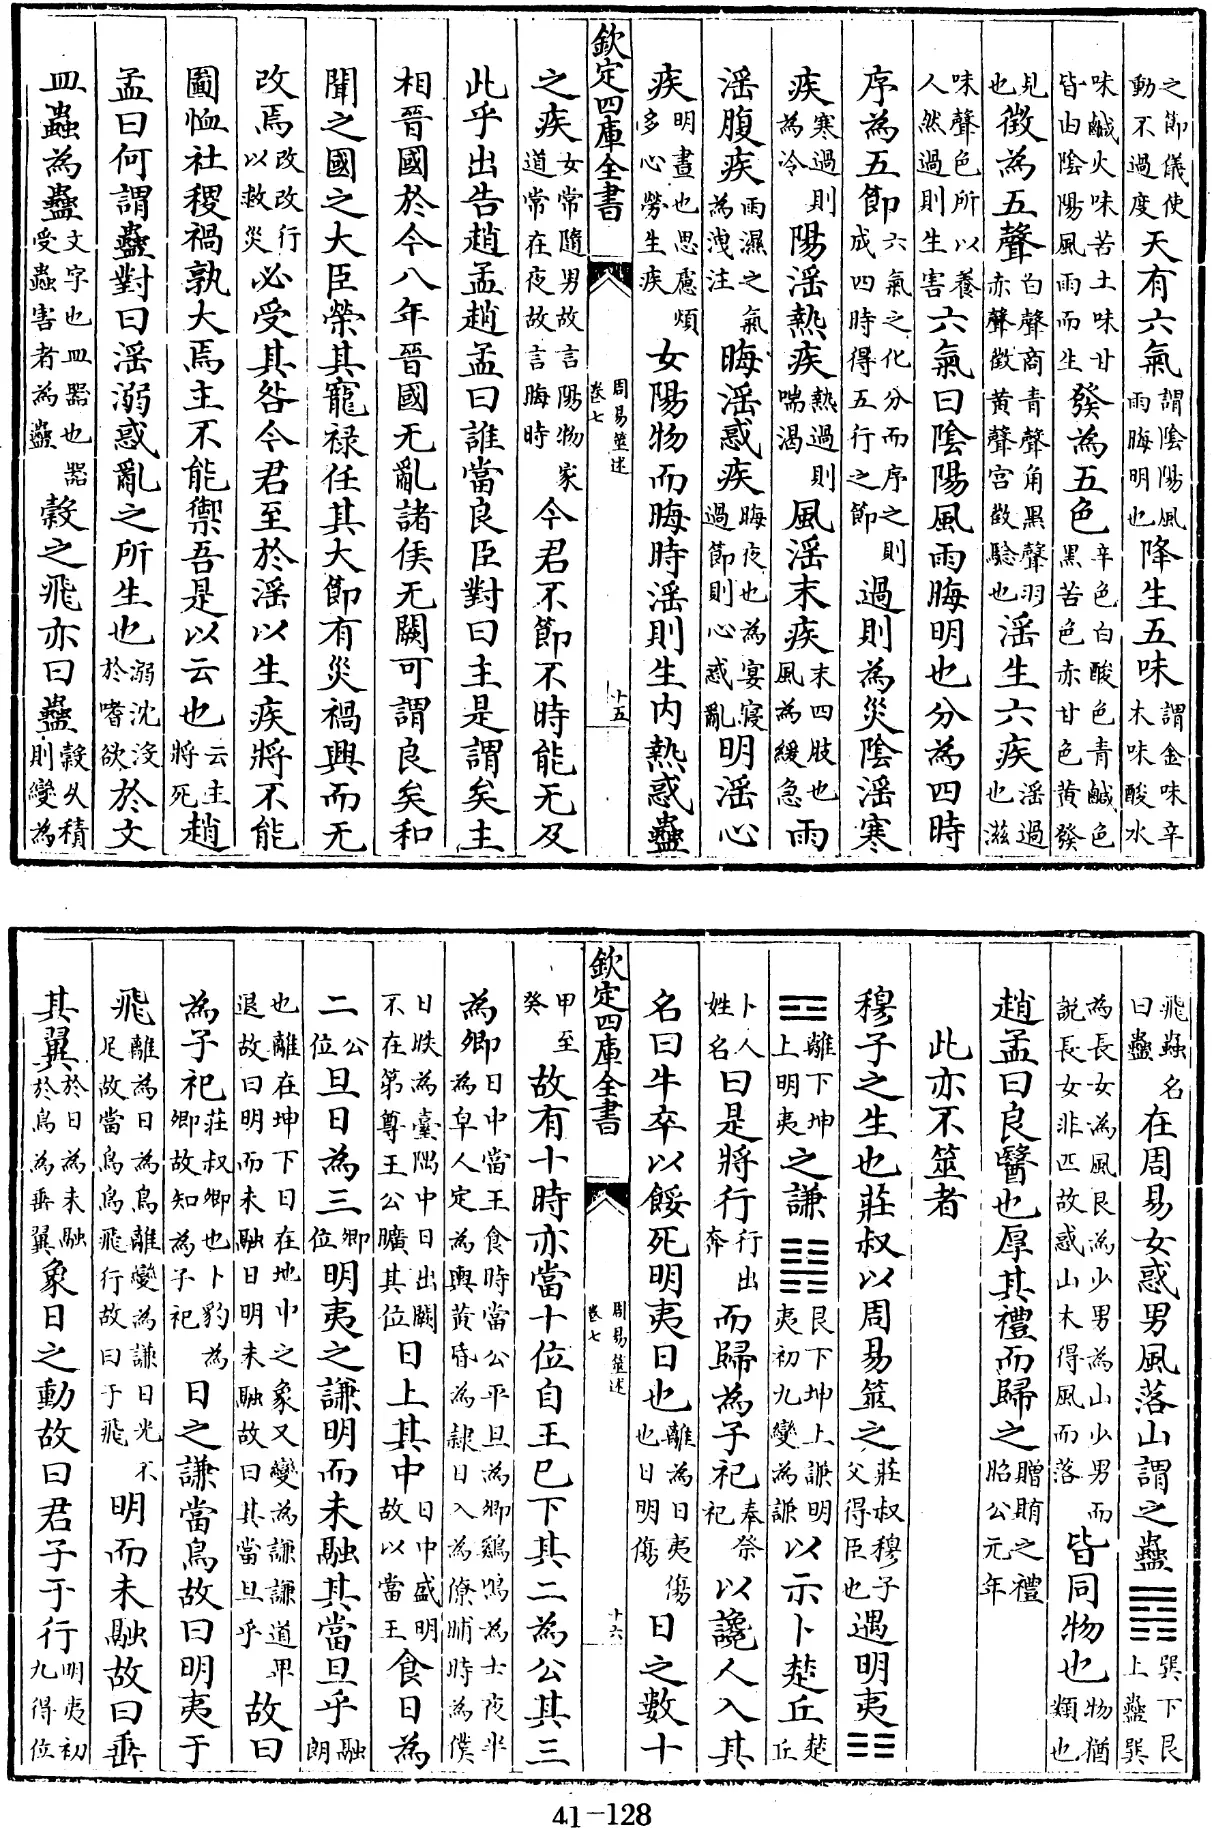 之節儀使動不過度天有六氣謂陰陽風雨晦明也降生五味謂金味辛木味酸水
味鹹火味苦土味甘皆由陰陽風雨而生發為五色辛色白酸色青鹹色黑苦色赤甘色黃發
見也徵為五聲白聲商青聲角黑聲羽赤聲徵黃聲宮徵驗也淫生六疾淫過也滋
味聲色所以養人然過則生害六氣曰陰陽風雨晦明也分為四時
序為五節六氣之化分而序之則成四時得五行之節過則為災陰淫寒
疾寒過則為冷陽淫熱疾熱過則喘渴風淫末疾末四肢也風為緩急雨
淫腹疾雨濕之氣為洩注晦淫惑疾晦夜也為宴寢過節則心惑亂明淫心
疾明晝也思慮煩多心勞生疾女陽物而晦時淫則生內熱惑蠱
欽定四庫全書 周易筮述 卷七 十五
之疾女常隨男故言陽物家道常在夜故言晦時今君不節不時能无及
此乎出告趙孟趙孟曰誰當良臣對曰主是謂矣主
相晉國於今八年晉國无亂諸侯无闕可謂良矣和
聞之國之大臣榮其寵祿任其大節有災禍興而无
改焉改改改行以救災必受其咎今君至於淫以生疾將不能
圖恤社稷禍孰大焉主不能禦吾是以云也云主將死趙
孟曰何謂蠱對曰淫溺惑亂之所生也溺沈沒於嗜欲於文
皿蟲為蠱文字也皿器也器受蟲害者為蠱穀之飛亦曰蠱穀久積則變為
飛蟲名曰蠱在周易女惑男風落山謂之蠱䷑巽下艮上蠱巽
為長女為風艮為少男為山少男而說長女非匹故惑山木得風而落皆同物也物猶類也
趙孟曰良醫也厚其禮而歸之贈賄之禮昭公元年
此亦不筮者
穆子之生也莊叔以周易筮之莊叔穆子父得臣也遇明夷䷣
離下坤上明夷之謙䷎艮下坤上謙明夷初九變為謙以示卜楚丘楚丘
卜人姓名曰是將行行出奔而歸為子祀奉祭祀以讒人入其
名曰牛卒以餒死明夷日也離為日夷傷也日明傷日之數十
欽定四庫全書 周易筮述 卷七 十六
甲至癸故有十時亦當十位自王已下其二為公其三
為卿日中當王食時當公平旦為卿鷄鳴為士夜半為皁人定為輿黃昏為隸日入為僚晡時為僕
日昳為臺隅中日出闕不在第尊王公曠其位日上其中日中盛明故以當王食日為
二公位旦日為三卿位明夷之謙明而未融其當旦乎融朗
也離在坤下日在地中之象又變為謙謙道卑退故曰明而未融日明未融故曰其當旦乎故曰
為子祀莊叔卿也卜豹為卿故知為子祀日之謙當鳥故曰明夷于
飛離為日為鳥離變為謙日光不足故當鳥鳥飛行故曰于飛明而未融故曰垂
其翼於日為未融於鳥為垂翼象日之動故曰君子于行明夷初九得位
41-128